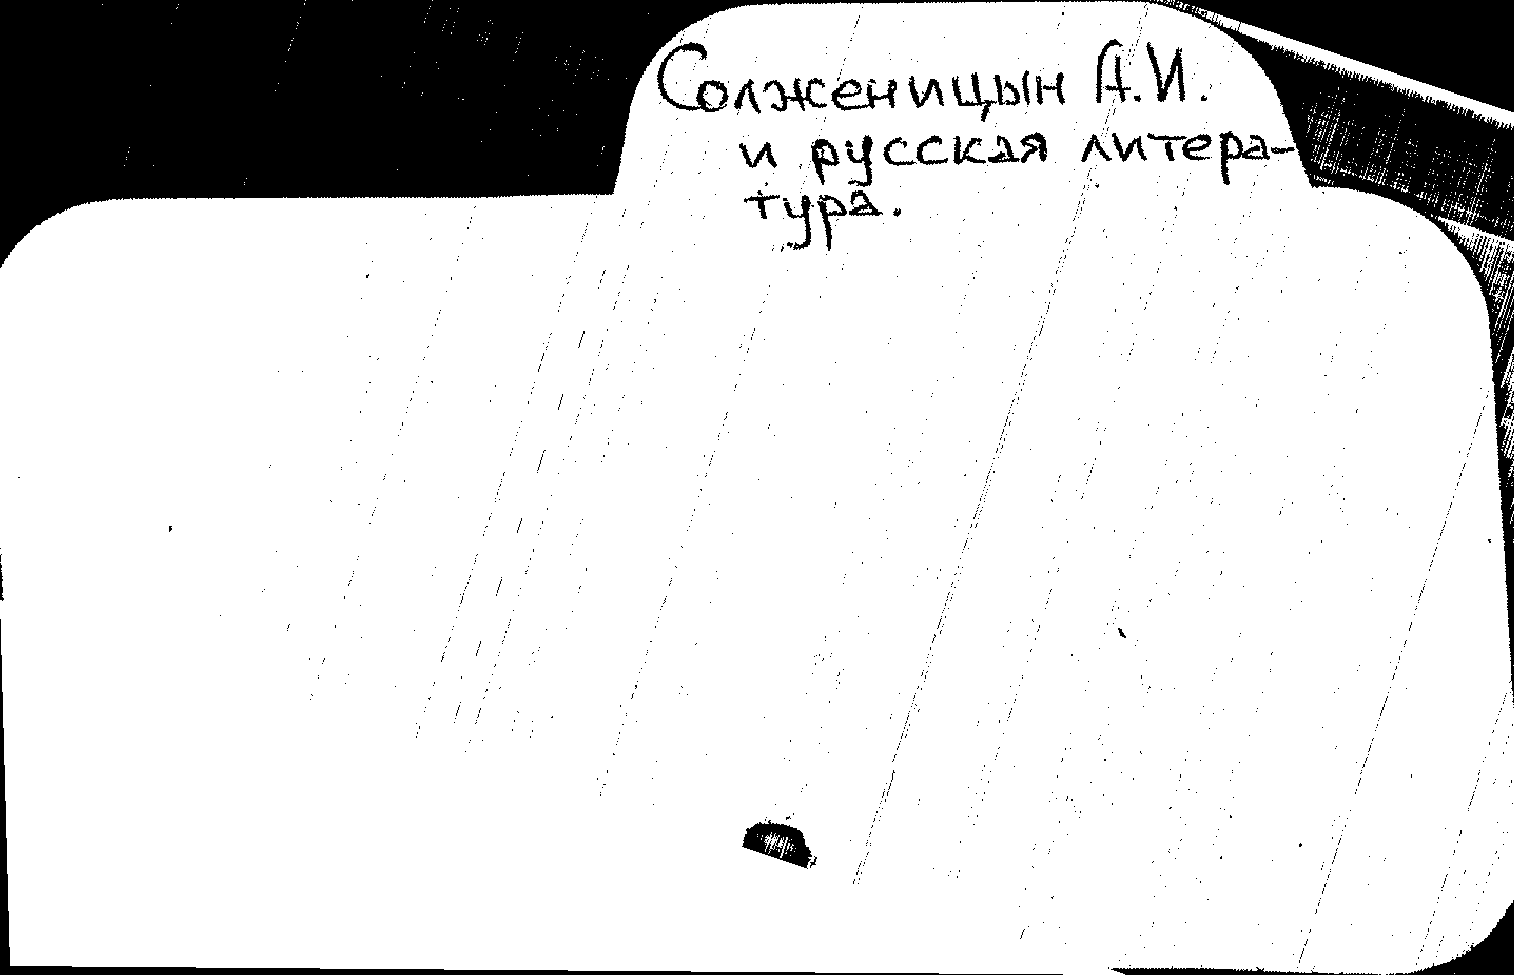 Солженицын А.И.
и русская литера-
тура.